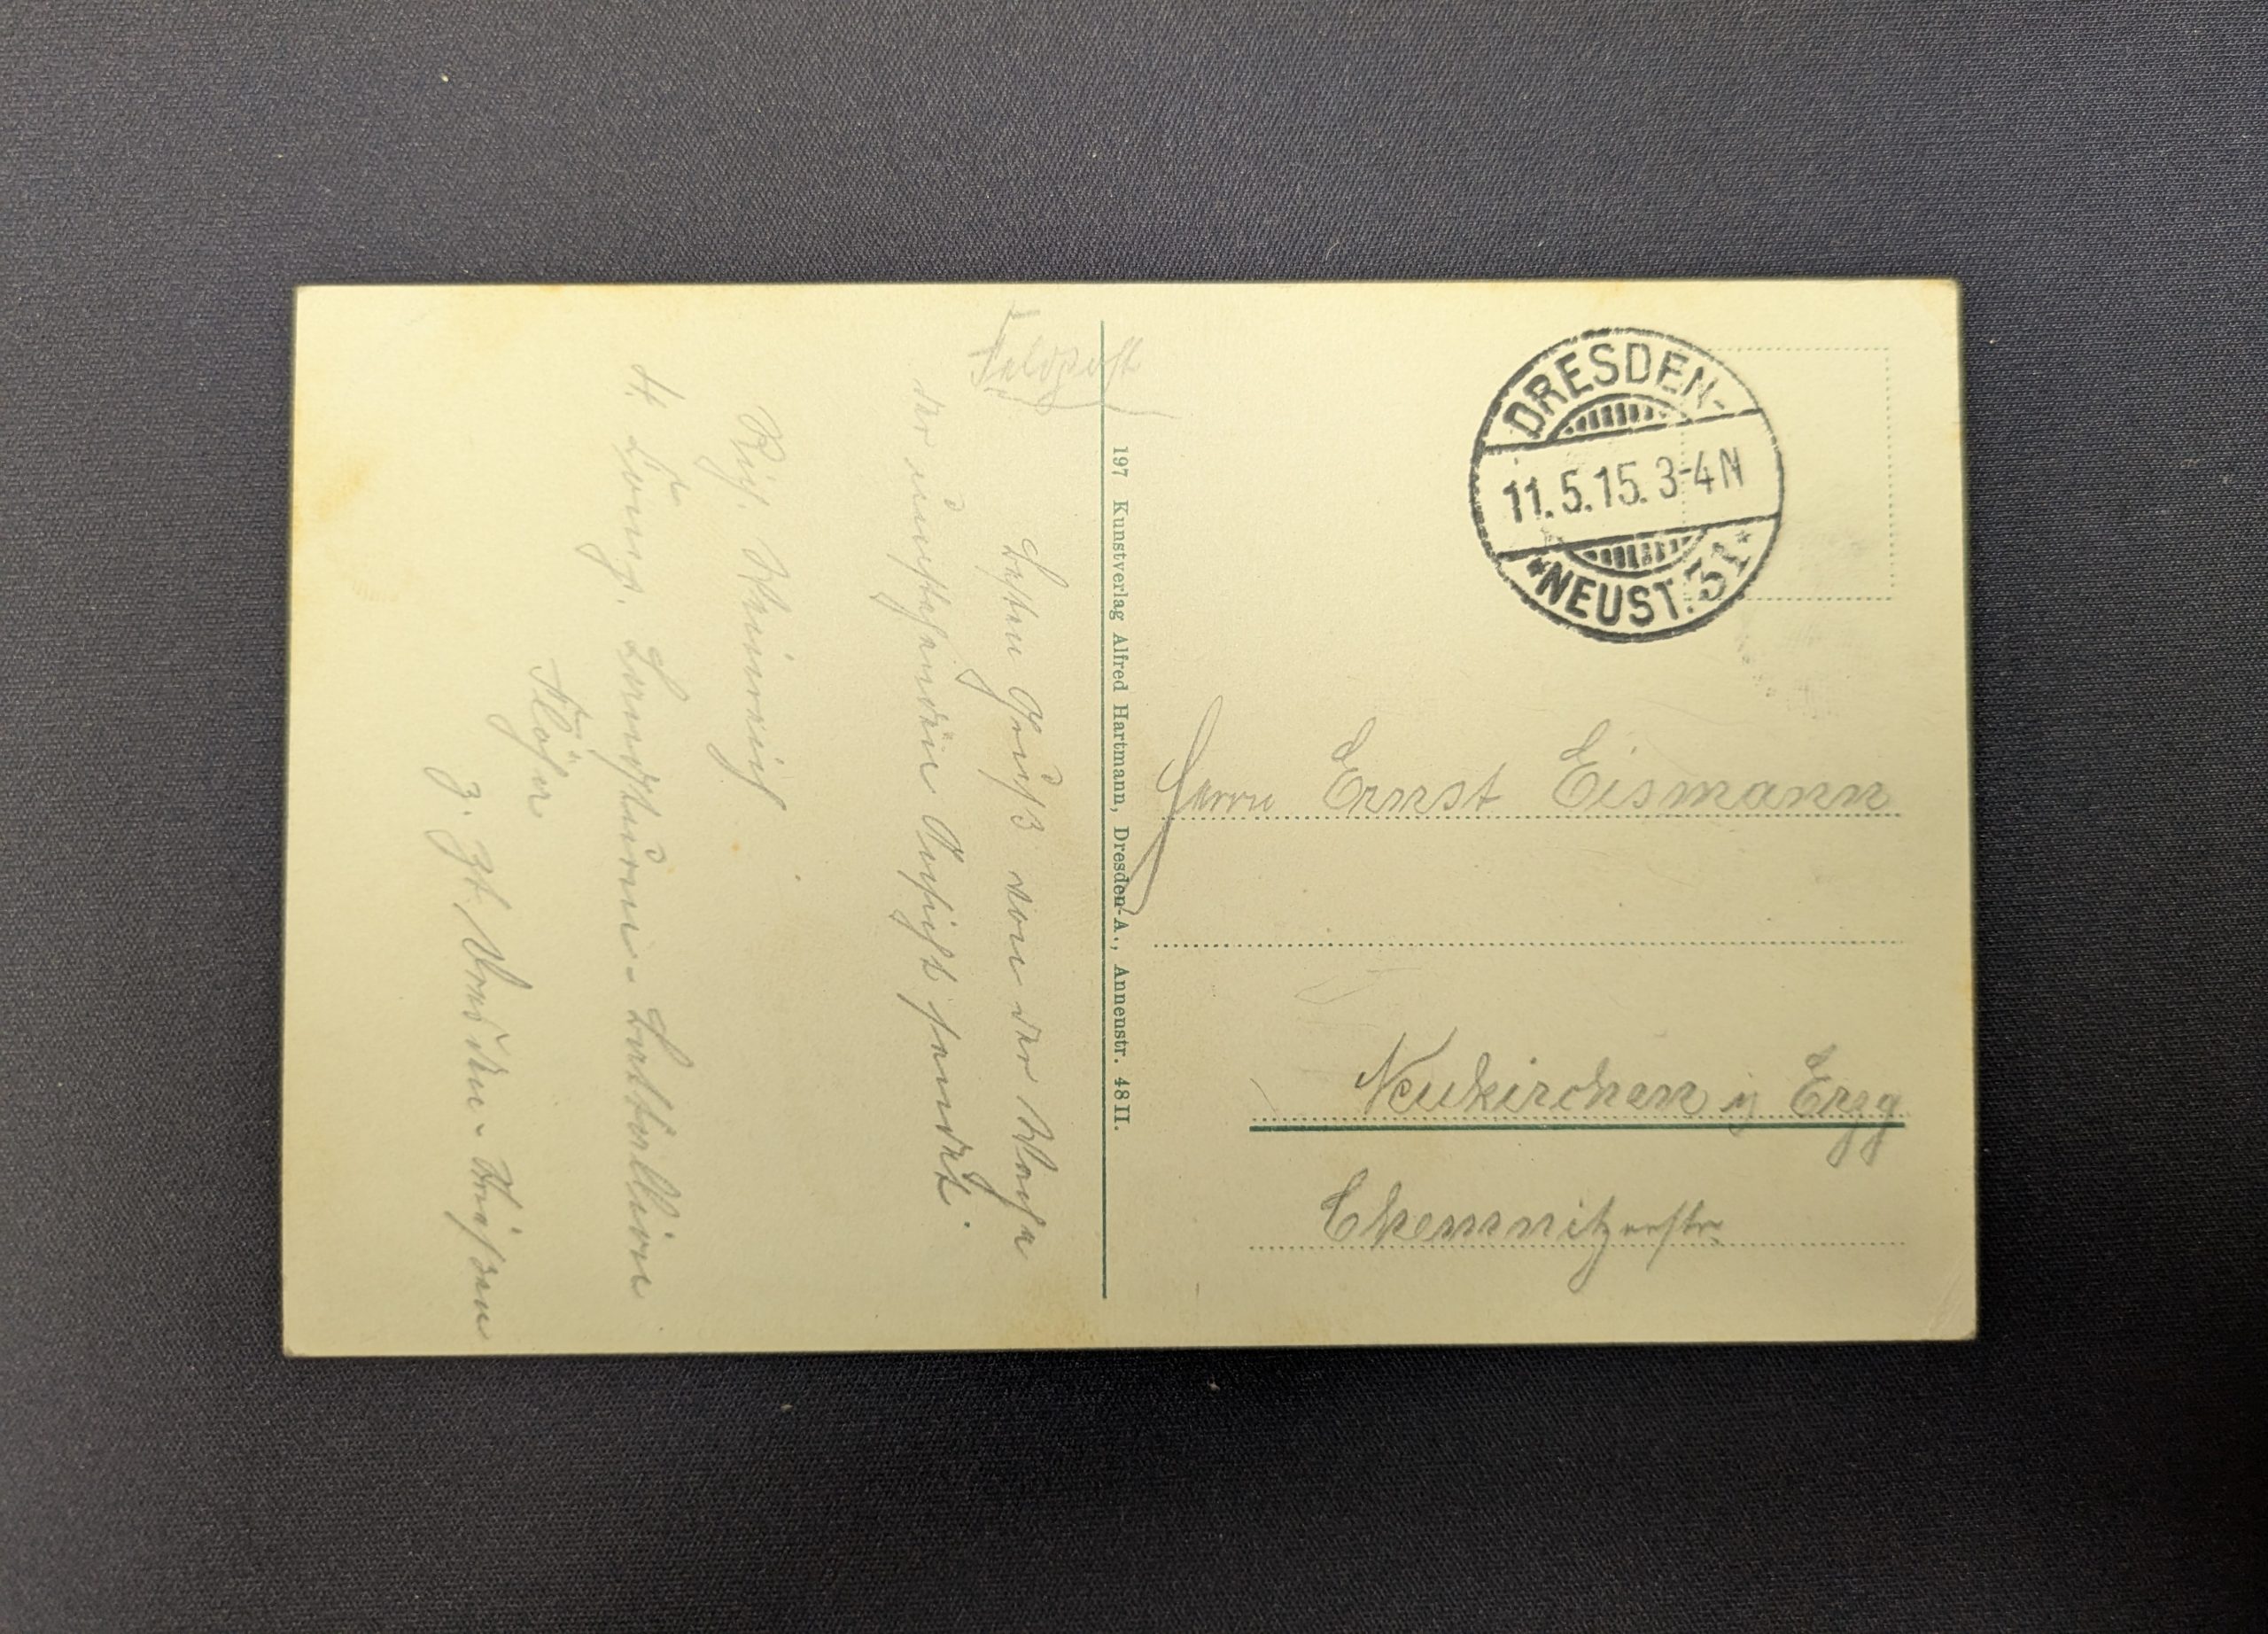 Feldpost
DRESDEN-
11.5.15. 3-4 N
*NEUST. 31*
Besten Gruß von der Wache
der umstehenden Ansicht sendet.
Rich. Weinrich
4. Komp. Landsturm-Battallion
Flöha
z. Zt. Dresden-
197 Kunstverlag Alfred Hartmann, Dresden-A., Annenstr. 48 II.
Herrn Ernst Eismann
Neukirchen i/ Erzg
Chemnitzerstr.